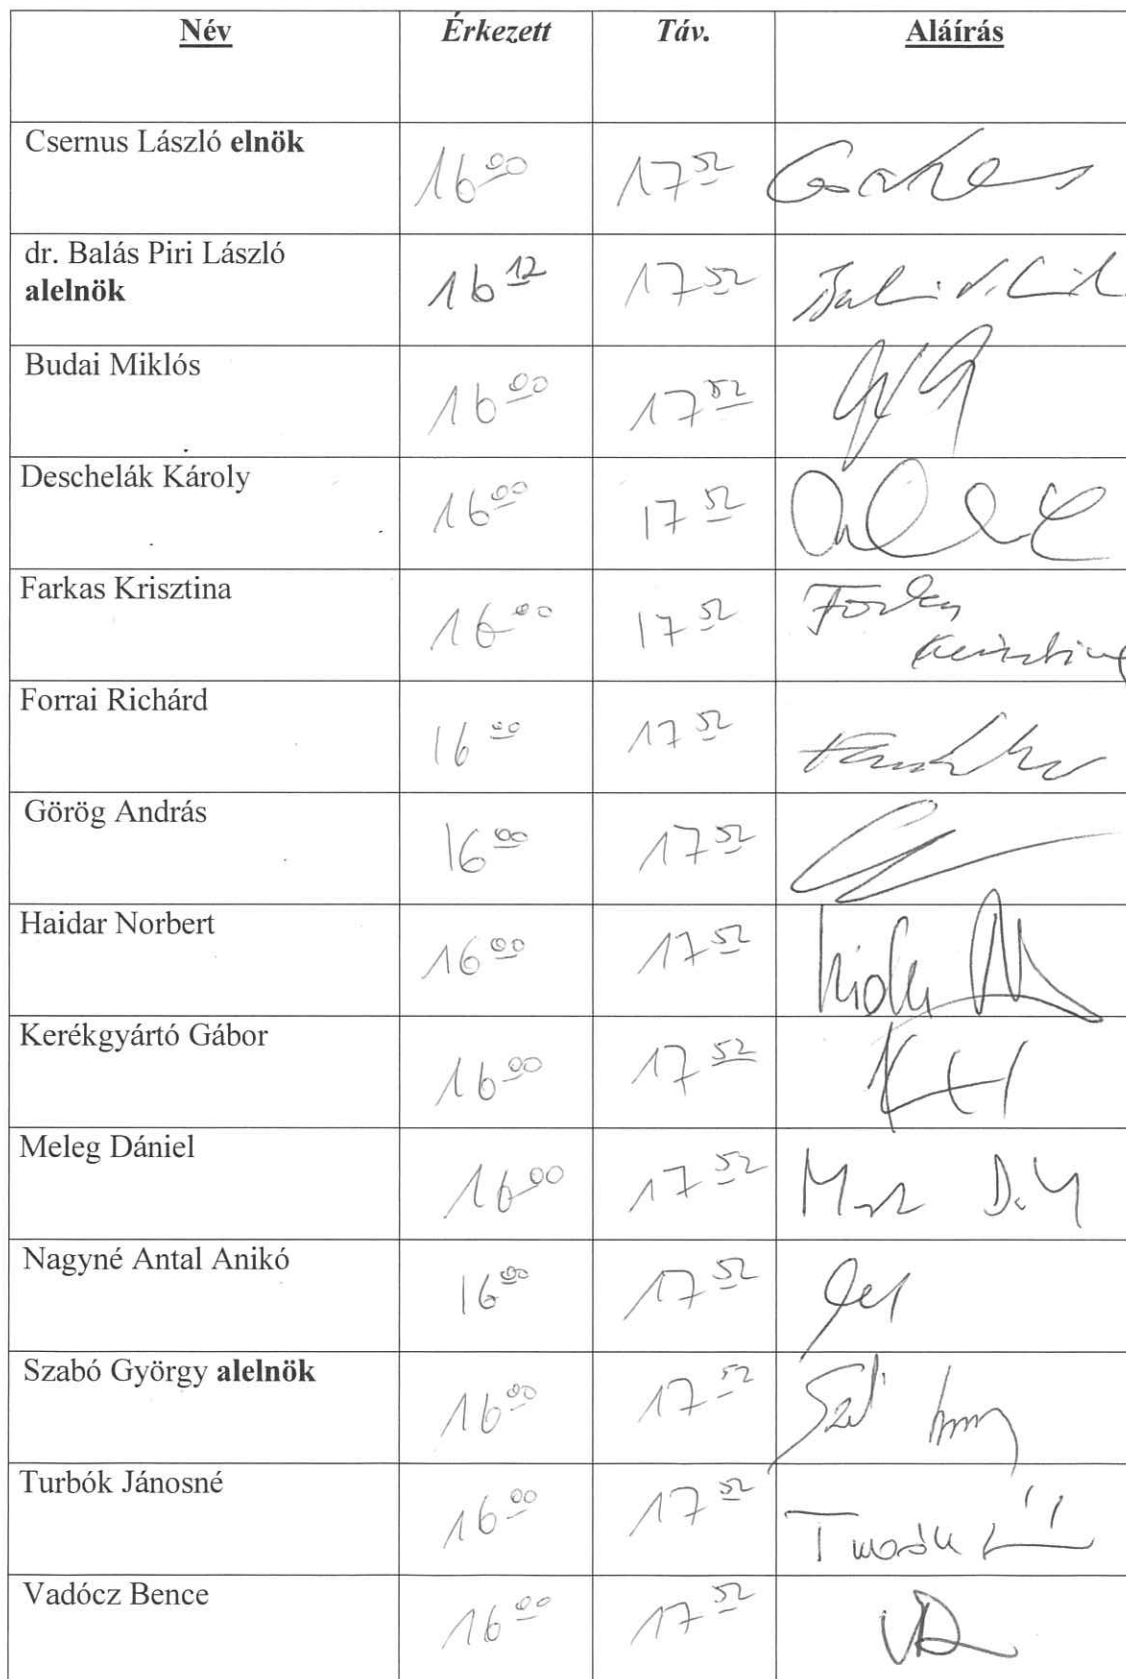 Név Érkezett Táv. Aláírás
Csernus László elnök 16 00 17 52
dr. Balás Piri László
alelnök 16 12 17 52
Budai Miklós 16 00 17 52
Deschelák Károly 16 00 17 52
Farkas Krisztina 16 00 17 52 Farkas
Krisztina
Forrai Richárd 16 00 17 52
Görög András 16 00 17 52
Haidar Norbert 16 00 17 52
Kerékgyártó Gábor 16 00 17 52
Meleg Dániel 16 00 17 52
Nagyné Antal Anikó 16 00 17 52
Szabó György alelnök 16 00 17 52
Turbók Jánosné 16 00 17 52
Vadócz Bence 16 00 17 52